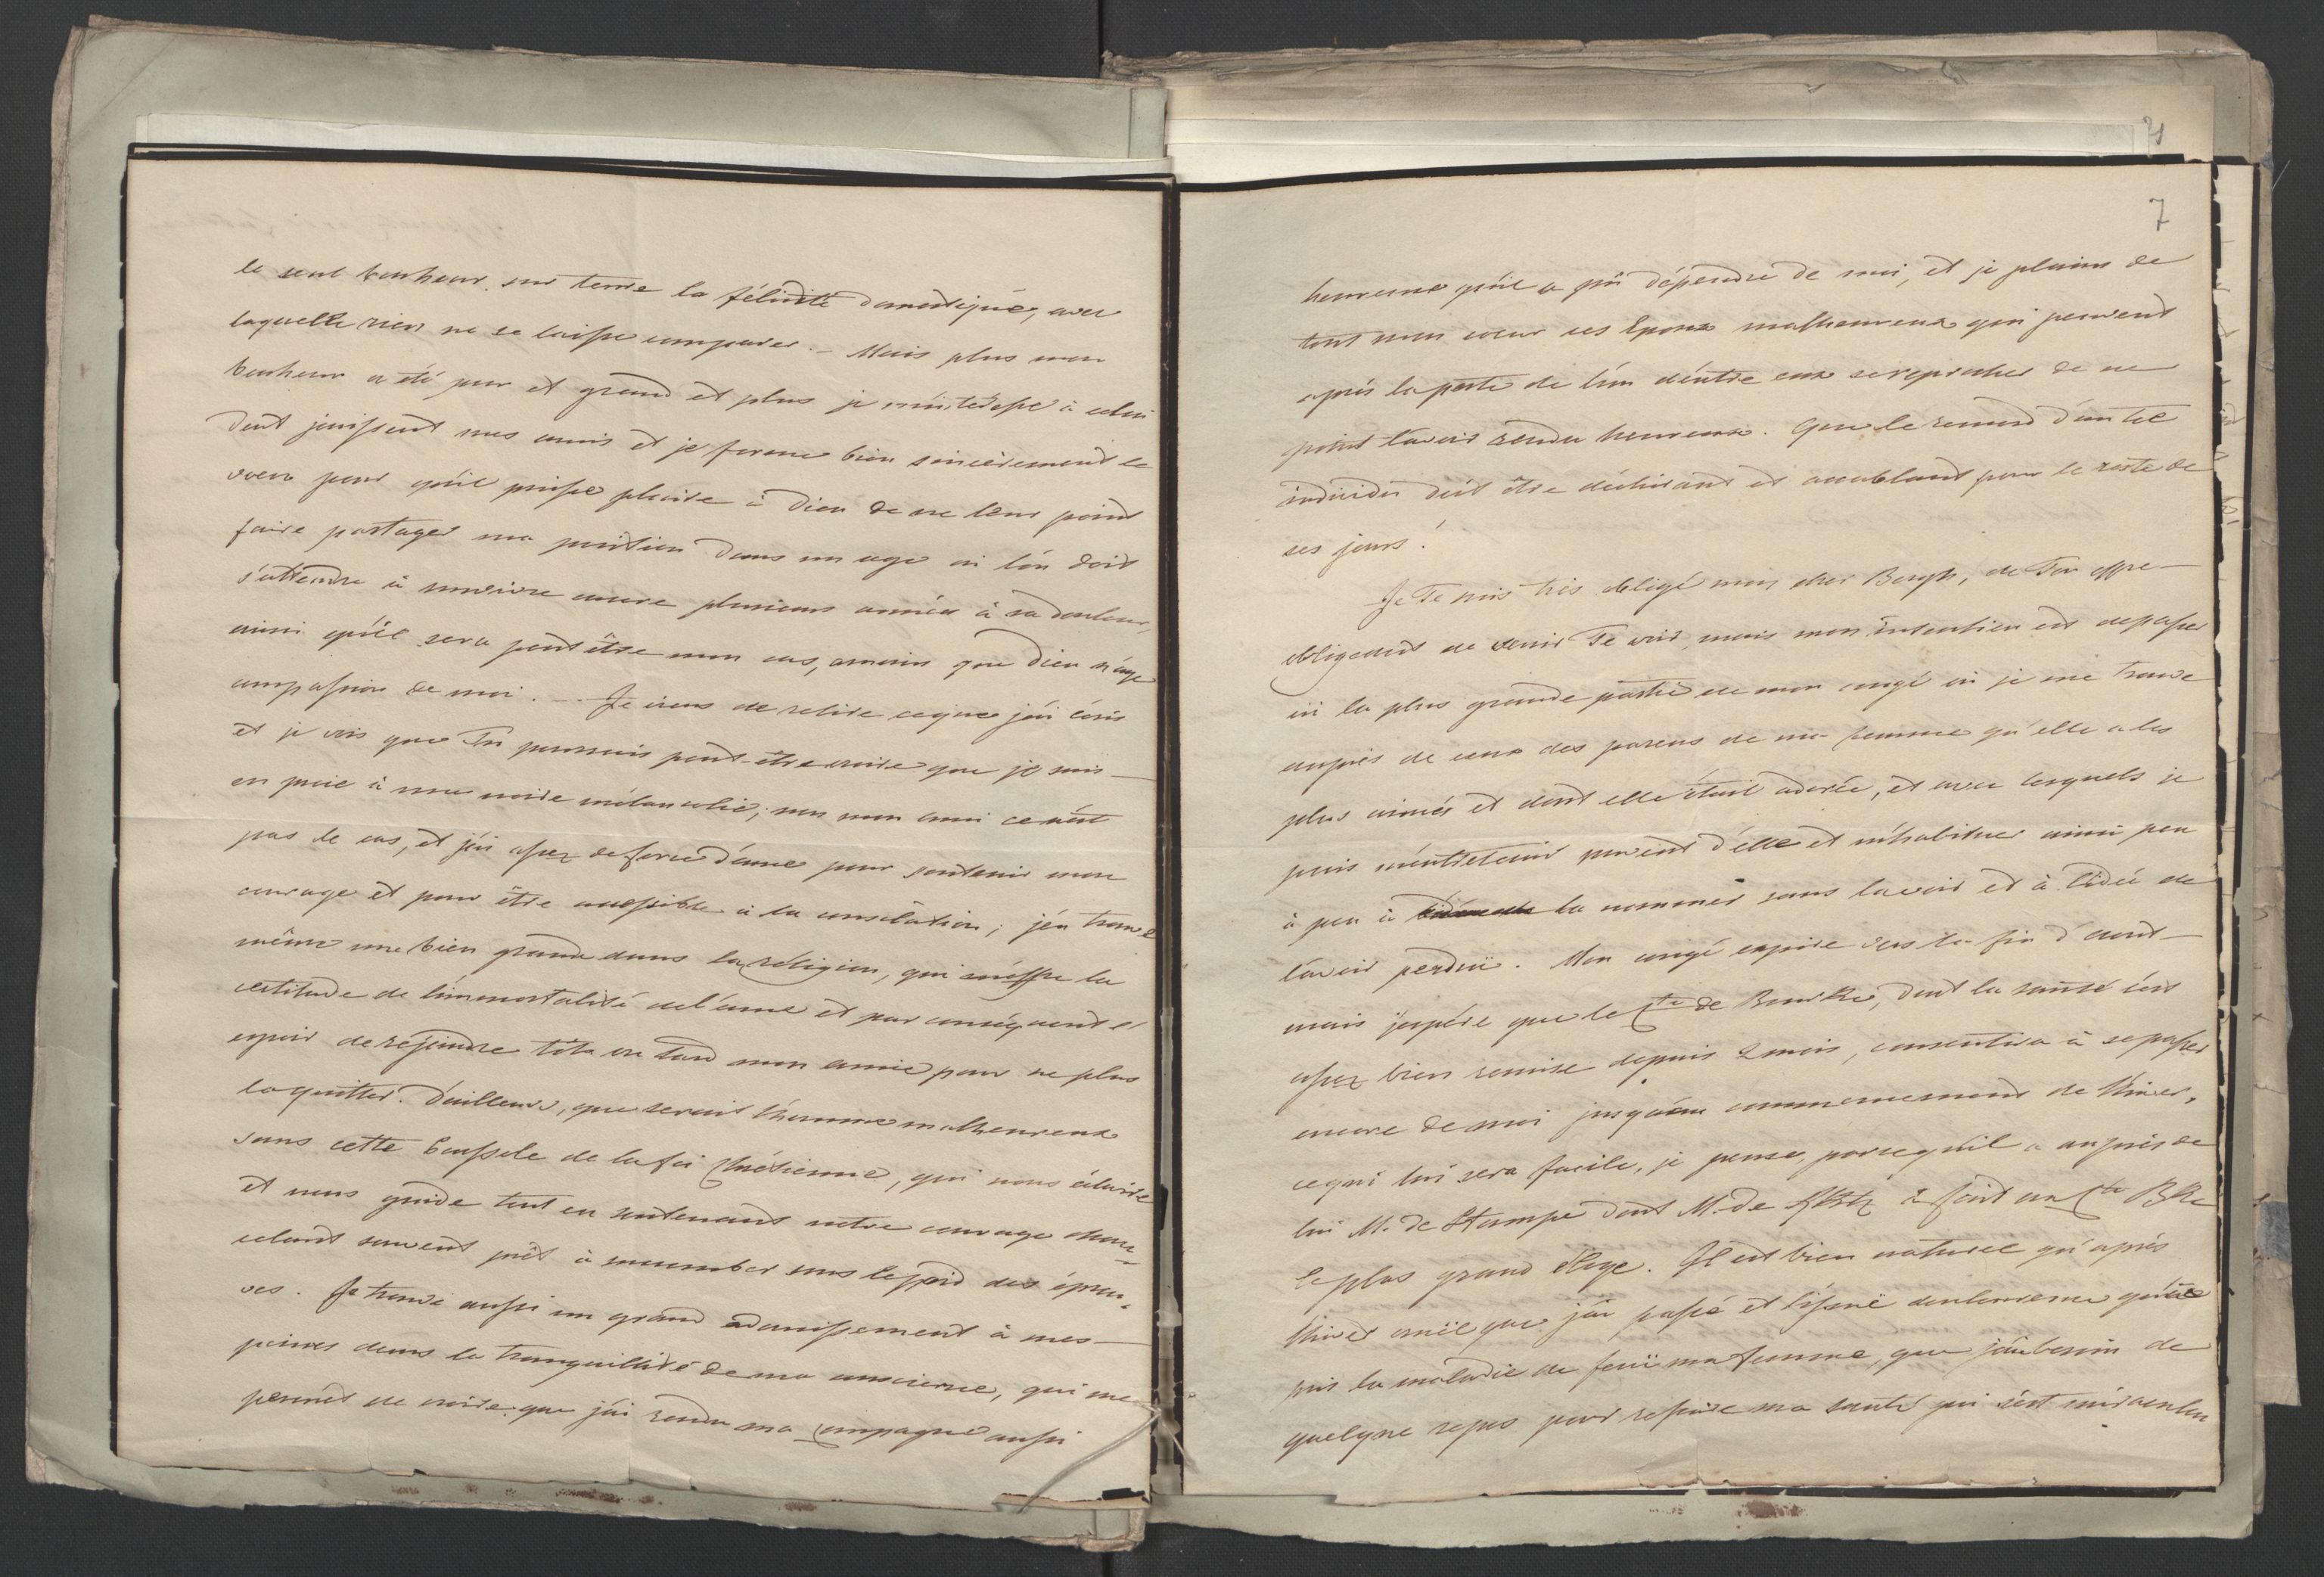 le seul bonheur sur terre la félicité domestique, avec
laquelle rien ne se laisse comparer. – Mais plus mon
bonheur a été pur et grand et plus je m'intéresse à celui
dont jouissent mes amis et je forme bien sincèrement le
voeu pour qu'il puisse plaire à Dieu de ne leur point
faire partager ma position dans un age où l'ón doit
s'attendre à survivre encore plusieurs années à sa douleur,
ainsi qu'il sera peut être mon cas, amoins que Dieu n'aye
compassion de moi. – Je viens de relire ceque j'ai écris
et je vois que Tu pourrais peut-être croire que je suis –
en proie à une noire mélancolie; non mon ami ce n'est
pas le cas, et j'ai assez de force d'ame pour soutenir mon
courage et pour être accessible à la consolation; j'en trouve
même une bien grande dans la réligion, qui m'offre la
certitude de l'immortalité de l'ame et par conséquent l'
espoir de rejoindre tôt ou tard mon amie pour ne plus
la quitter. D'ailleurs, que serait l'homme malheureux
sans cette boussole de la foi Chrétienne, qui nous éclaire
et nous guide tout en soutenant notre courage chan-
celant souvent prêt à succomber sous le poid des épreu-
ves. Je trouve aussi un grand adoucissement à mes –
peines dans la tranquillité de ma conscience, qui me
permèt de croire que j'ai rendu ma Compagne aussi
7
heureuse qu'il a pû dépendre de moi, et je plains de
tout mon coeur ces Epoux malheureux qui peuvent
après la perte de l'ún d'éntre eux se reprocher de ne
point l'avoir rendu heureux. Que le remord d'un tel
individu doit être déchirant et accablant pour le reste de
ses jours!
Je Te suis très obligé mon cher Bergh, de Ton offre –
obligeant de venir Te voir, mais mon intention est de passer
ici la plus grande partie de mon congé où je me trouve
auprès de ceux des parens de ma femme qu'elle a les
plus aimés et dont elle était adorée, et avec lesquels je
puis m'entretenir souvent d'elle et m'habituer ainsi peu
à peu à la nommer sans la voir et à l'idée de
l'avoir perdue. Mon congé expire vers la fin d'aout –
mais j'espère que le Cte de Bourke, dont la santé s'est
assez bien remise depuis 2 mois, consentira à se passer
encore de moi jusqu'au commencement de l'hiver,
ce qui lui sera facile, je pense, parcequ'il a auprès de
lui M. de Stampe dont M. de fait au Cte
le plus grand éloge. Il est bien naturel qu'après
l'hiver cruël que j'ai passé et l'issuë douloureuse qu'a
pris la maladie de feuë ma femme, que j'ai besoin de
quelque repos pour refaire ma santé qui s'est miraculeu